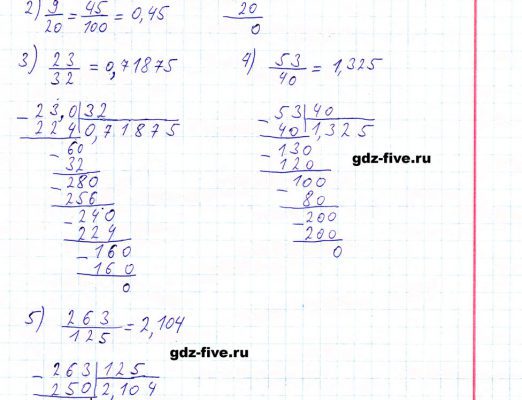 2) 9/20 = 45/100 = 0,45
20
0
3) 23/32 = 0,71875
- 23,0 | 32
224 | 0,71875
- 60
32
- 280
256
- 240
224
- 160
160
0
4) 53/40 = 1,325
- 53 | 40
40 | 1,325
- 130
120
- 100
80
- 200
200
0
gdz-five.ru
5) 263/125 = 2,104
gdz-five.ru
- 263 | 125
250 | 2,104